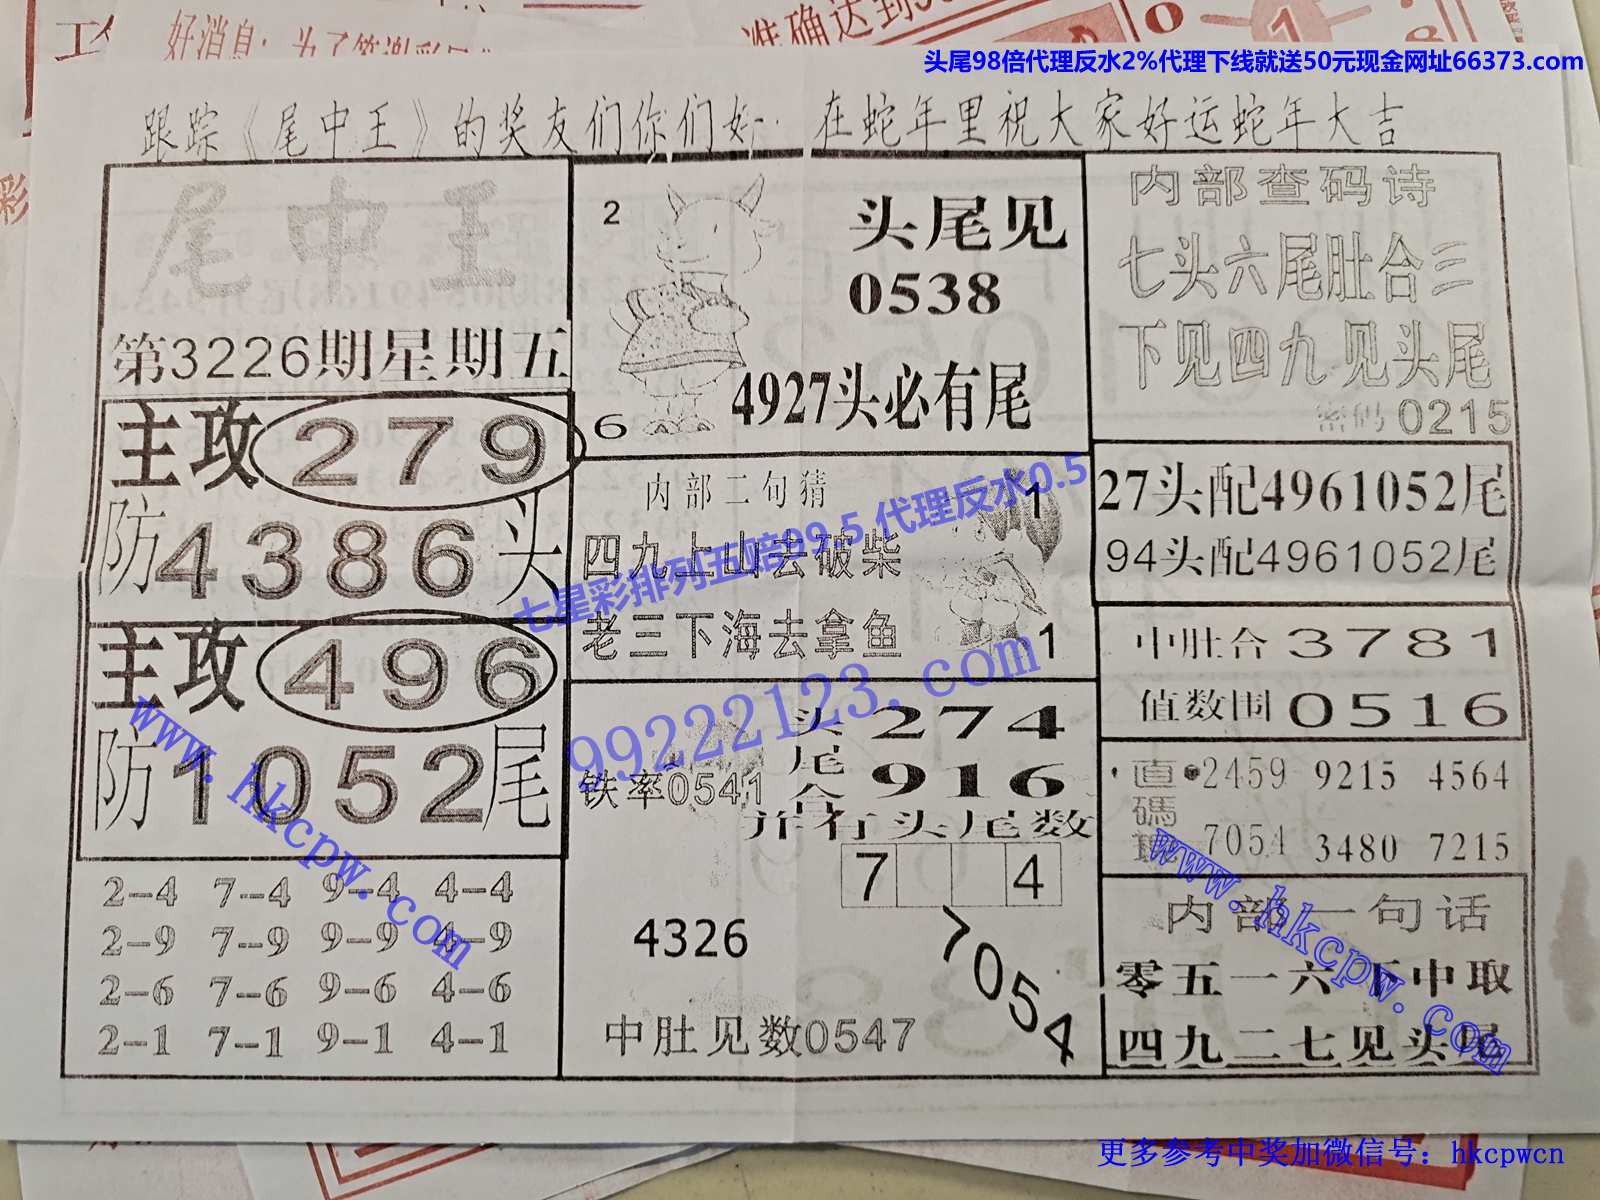 好消息:为了答谢彩
准确达到
头尾98倍代理反水2%代理下线就送50元现金网址66373.com
跟踪《尾中王》的奖友们你们好 在蛇年里祝大家好运蛇年大吉
尾中王
第3226期星期五
主攻 279
防4386头
主攻 496
防1052尾
2-4 7-4 9-4 4-4
2-9 7-9 9-9 4-9
2-6 7-6 9-6 4-6
2-1 7-1 9-1 4-1
2
头尾见
0538
4927头必有尾
6
内部二句猜
1
四九上山去破柴
老三下海去拿鱼
1
七星彩排列五赔99.5 代理反水0.5
99222123.com
头尾合
274
916
铁率0541
并有头尾数
7 4
4326
7054
中肚见数0547
内部查码诗
七头六尾肚合三
下见四九见头尾
密码 0215
27头配4961052尾
94头配4961052尾
中肚合3781
值数围0516
直碼
2459 9215 4564
7054 3480 7215
内部一句话
零五一六下中取
四九二七见头尾
www.hkcpw.com
www.hkcpw.com
更多参考中奖加微信号：hkcpwcn